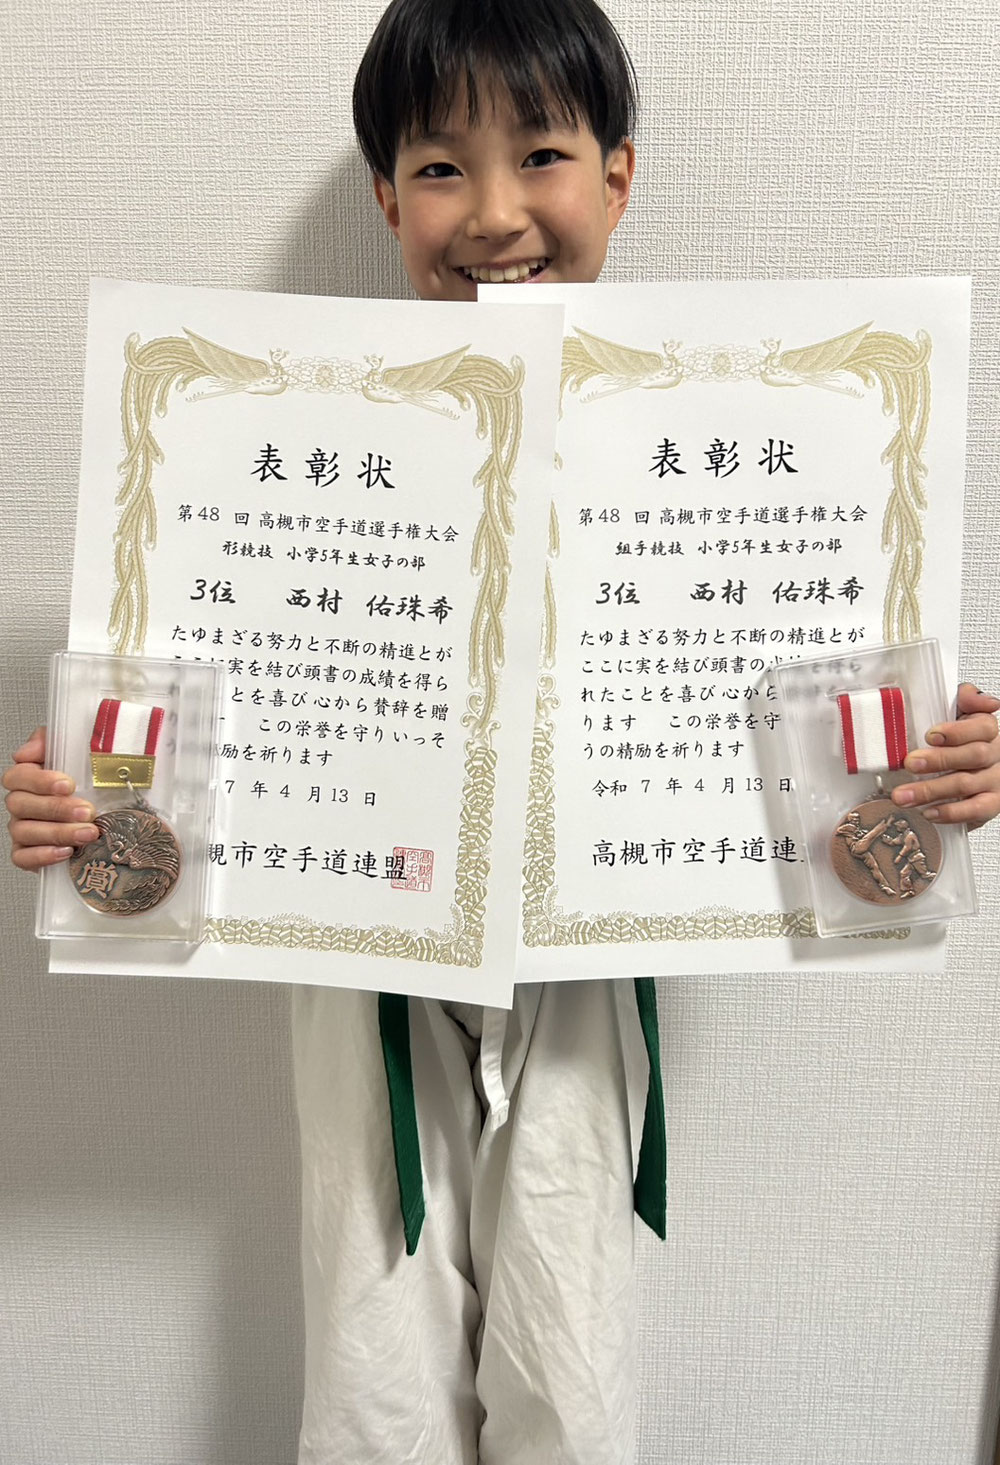 表彰状
第48回 高槻市空手道選手権大会
形競技 小学5年生女子の部
3位 西村 佑珠希
たゆまざる努力と不断の精進とが
ここに実を結び頭書の成績を得ら
とを喜び心から賛辞を贈
この栄誉を守りいっそ
う 励を祈ります
7年4月13日
槻市空手道連盟
賞
表彰状
第48回 高槻市空手道選手権大会
組手競技 小学5年生女子の部
3位 西村 佑珠希
たゆまざる努力と不断の精進とが
ここに実を結び頭書の成績を得ら
れたことを喜び心から
ります この栄誉を守
うの精励を祈ります
令和7年4月13日
高槻市空手道連